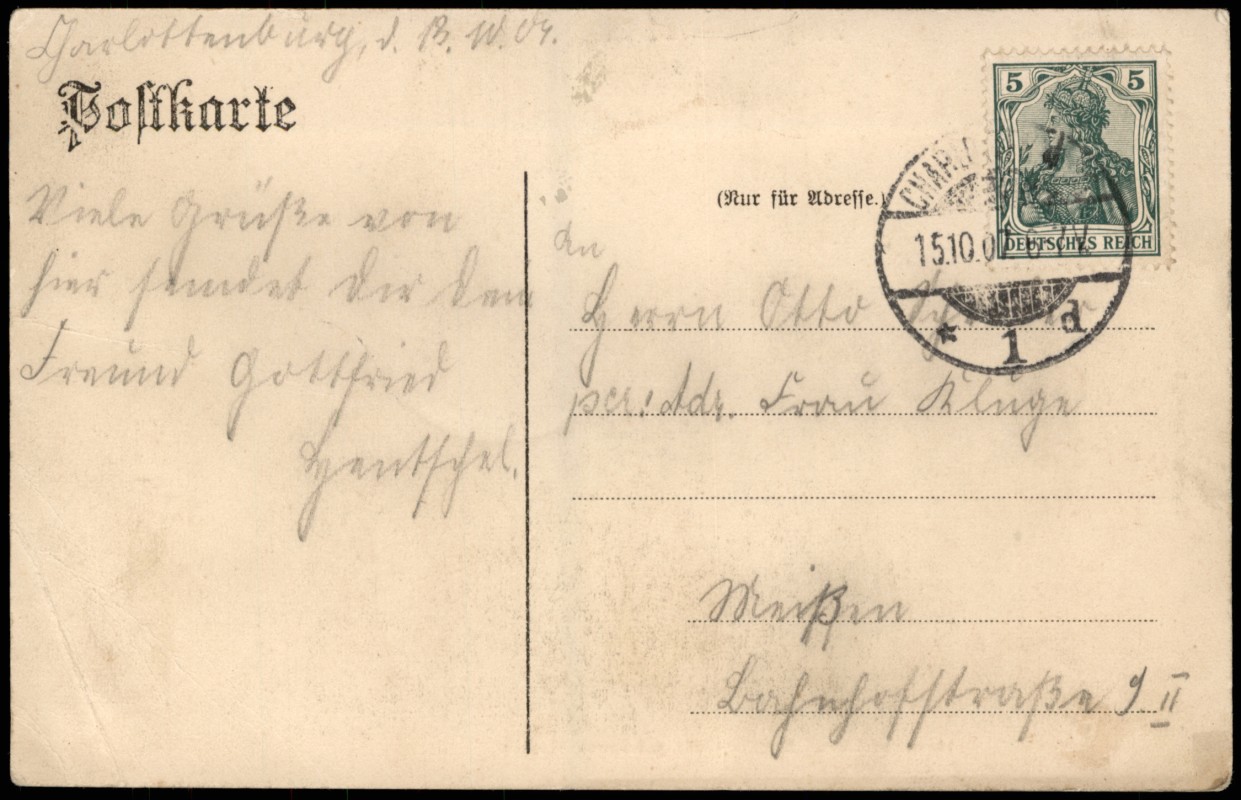 Charlottenburg, d. 13. 10. 07.
Postkarte
Viele Grüße von
hier sendet Dir Dein
Freund Gottfried
Hentschel.
(Nur für Adresse.)
5 5
DEUTSCHES REICH
15.10.07 6-7 V.
* 1 d
An
Herrn Otto
per. Adr. Frau Kluge
Meißen
Bahnhofstraße 9 II